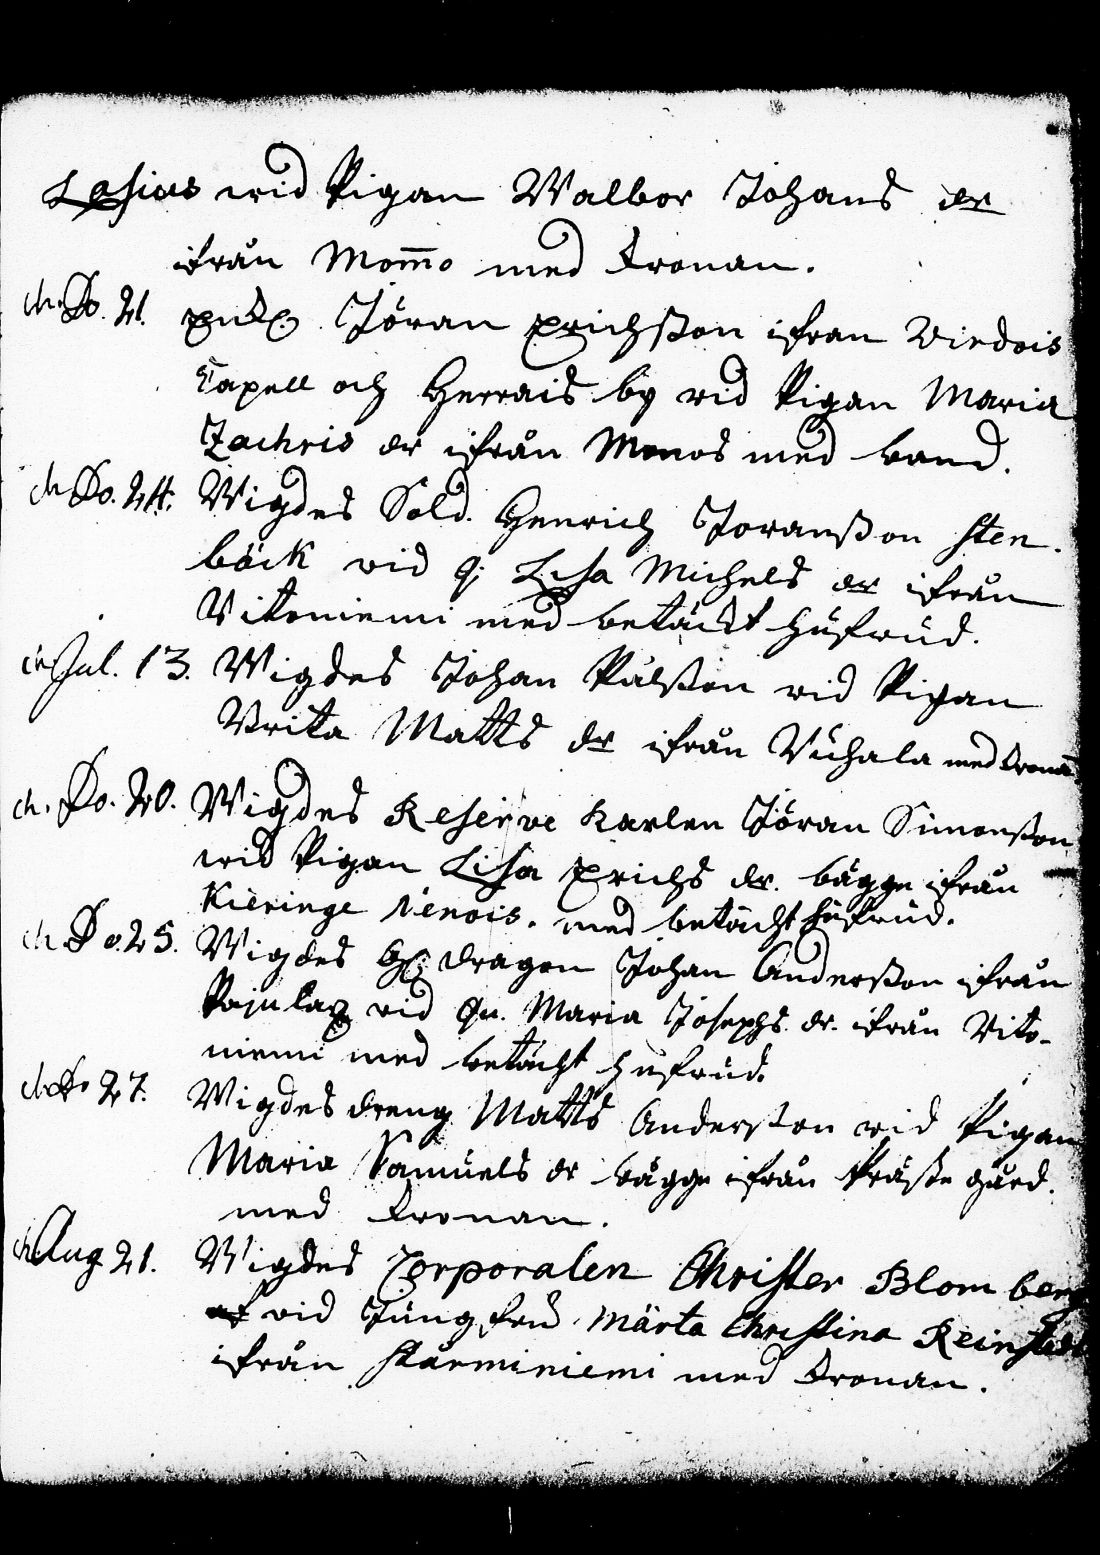 Lasius wid Pigan Walbor Johans dr
ifrån Mom̅o med Cronan.
d. Do. 21. Jöran Erichsson ifrån Virdois
Capell och Herrais by vid Pigan Maria
Zachris dr ifrån Monos med band.
d. Do. 24. Wigdes Sold. Henrich Joransson Sten-
bäck vid q: Lisa Michels dr ifrån
Vitoniemi med betäckt hufwud.
d. Jul. 13. Wigdes Johan Pålsson vid Pigan
Brita Matts dr ifrån Vuhala med Cronan
d. Do. 20. Wigdes Reserve Karlen Jöran Simonsson
wid Pigan Lisa Erichs dr. bägge ifrån
Kieringe Nenois. med betächt hufwud.
d. Do. 25. Wigdes dragon Johan Andersson ifrån
Pajulax vid Qu. Maria Josephs dr. ifrån Vito-
niemi med betächt hufwud.
d. Do 27. Wigdes dreng Matts Andersson vid Pigan
Maria Samuels dr bägge ifrån Präste gård.
med Cronan.
d. Aug 21. Wigdes Corporalen Christer Blom berg
vid Jungfru Märta Christina Reinstedt
ifrån Starminiemi med Cronan.